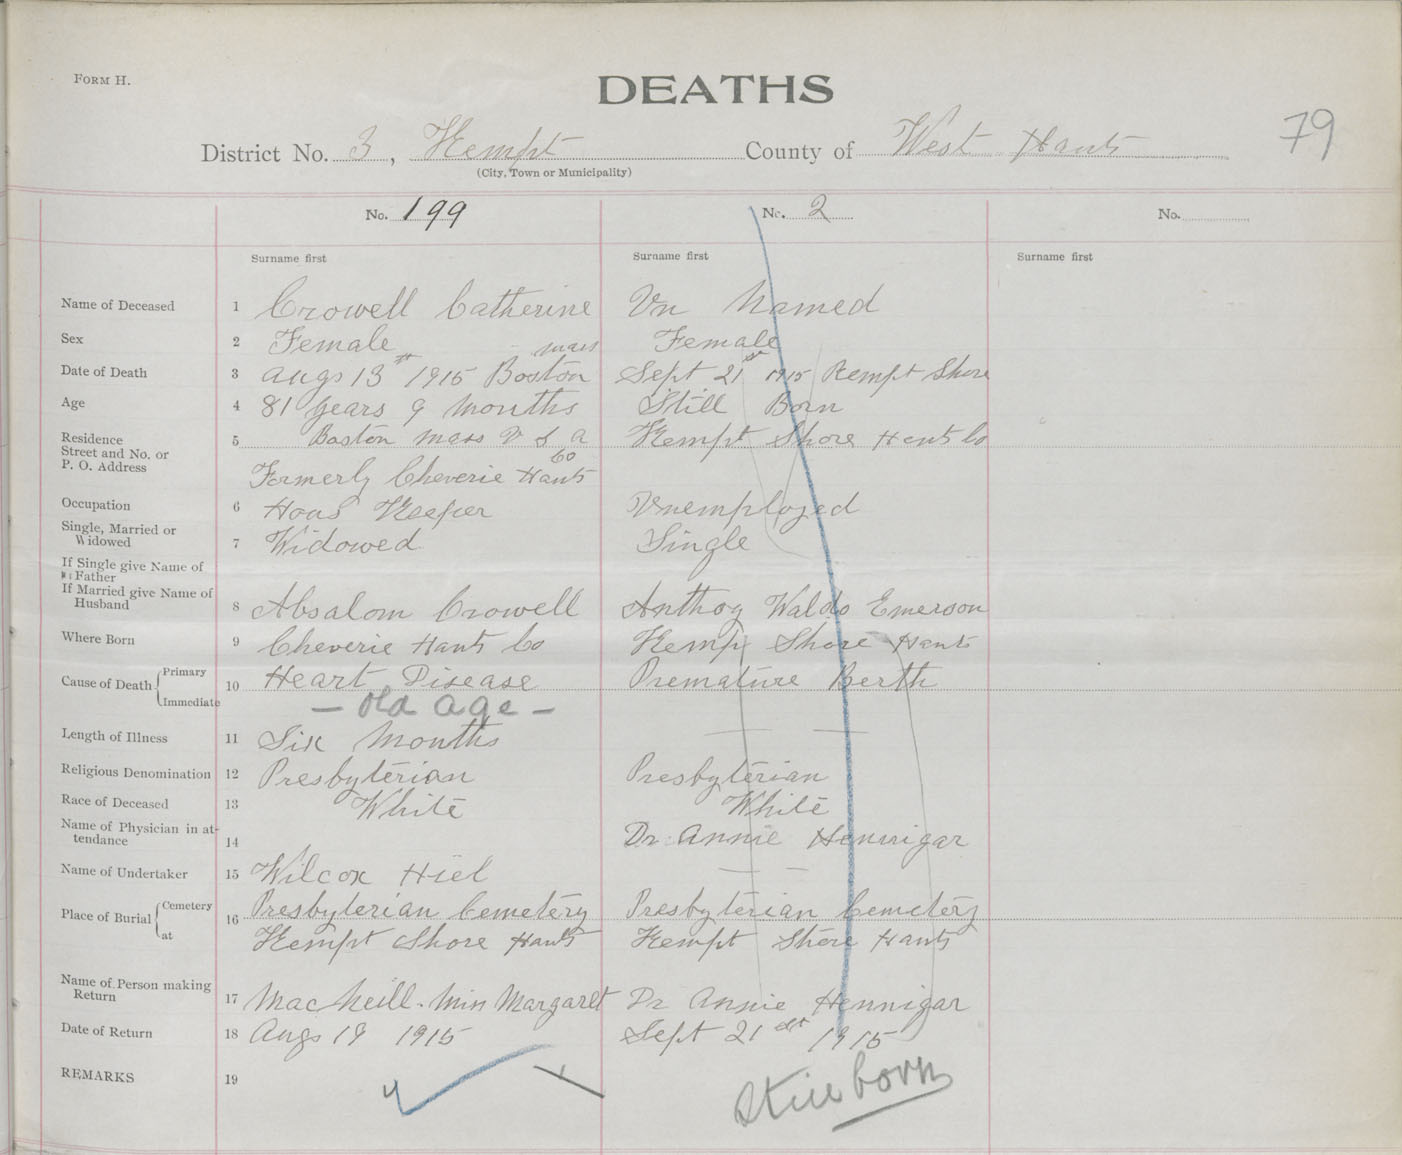 FORM H.
DEATHS
79
District No. 3, Kempt County of West Hants
(City, Town or Municipality)
No. 199 No. 2 No.
Surname first Surname first Surname first
Name of Deceased 1 Crowell Catherine Un Named
Sex 2 Female Female
mass
Date of Death 3 Augs 13th 1915 Boston Sept 21st 1915 Kempt Shore
Age 4 81 years 9 Months Still Born
Residence 5 Boston Mass U S A Kempt Shore Hants Co
Street and No. or
P. O. Address
Co
Formerly Cheverie Hants
Occupation 6 Hous Keeper Unemployed
Single, Married or
Widowed 7 Widowed Single
If Single give Name of
Father
If Married give Name of
Husband 8 Absalom Crowell Anthoy Waldo Emerson
Where Born 9 Cheverie Hants Co Kemp Shore Hants
Cause of Death Primary 10 Heart Disease Premature Berth
Immediate
- Old Age -
Length of Illness 11 Six Months — —
Religious Denomination 12 Presbyterian Presbyterian
Race of Deceased 13 White White
Name of Physician in at-
tendance 14 Dr. Annie Hennigar
Name of Undertaker 15 Wilcox Hiel — —
Place of Burial Cemetery 16 Presbyterian Cemetery Presbyterian Cemetery
at Kempt Shore Hants Kempt Shore Hants
Name of Person making
Return 17 MacNeill. Min Margaret Dr Annie Hennigar
Date of Return 18 Augs 19 1915 Sept 21st 1915
REMARKS 19
Stillborn